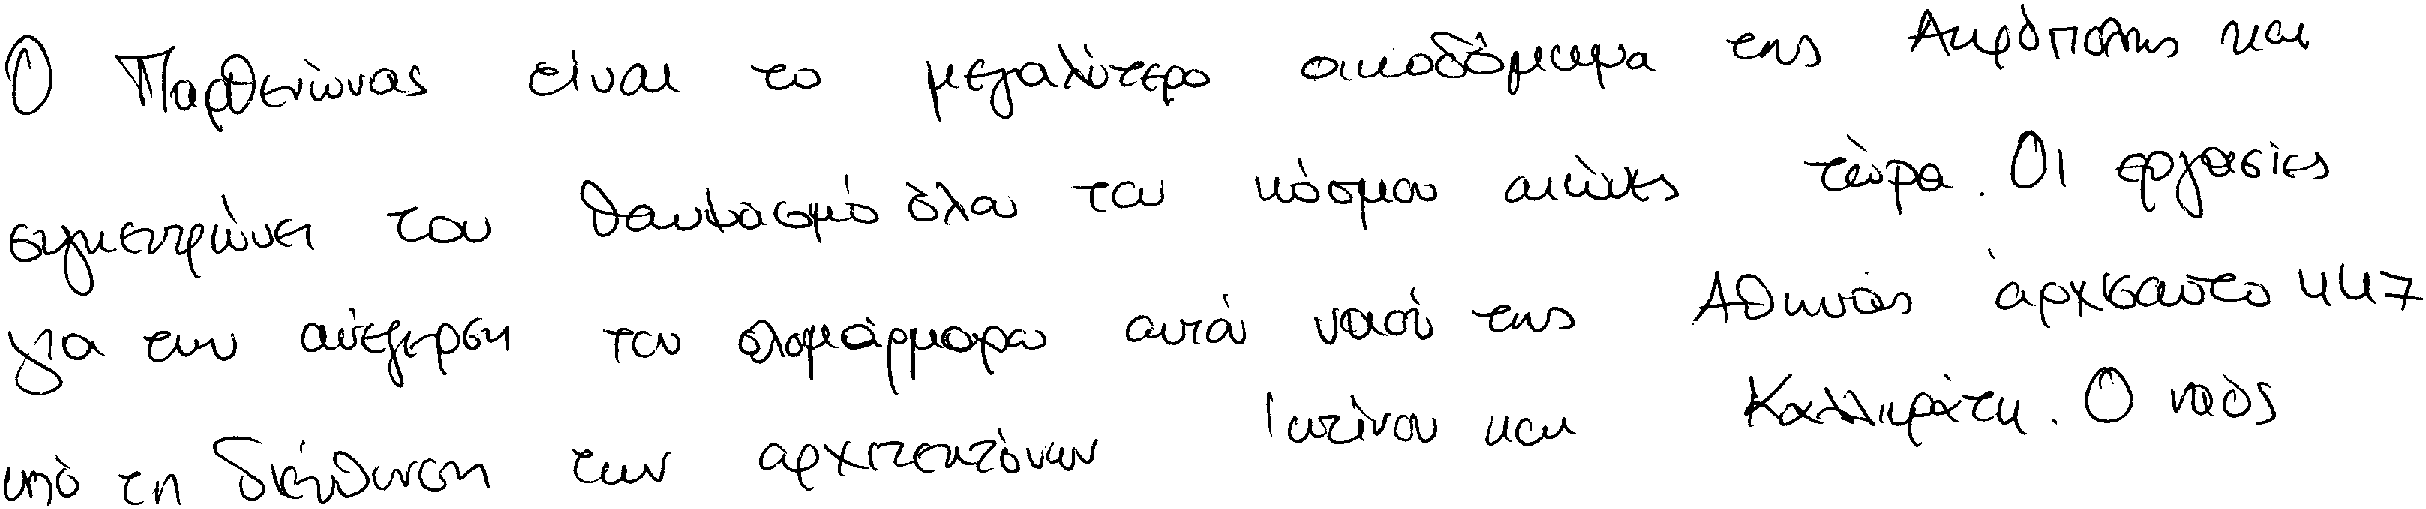 Ο Παρθενώνας είναι το μεγαλύτερο οικοδόμημα της Ακρόπολης και
συγκεντρώνει τον θαυμασμό όλου του κόσμου αιώνες τώρα. Οι εργασίες
για την ανέγερση του ολομάρμαρου αυτού ναού της Αθηνάς άρχισαν το 447
υπό τη διεύθυνση των αρχιτεκτόνων Ικτίνου και Καλλικράτη. Ο ναός